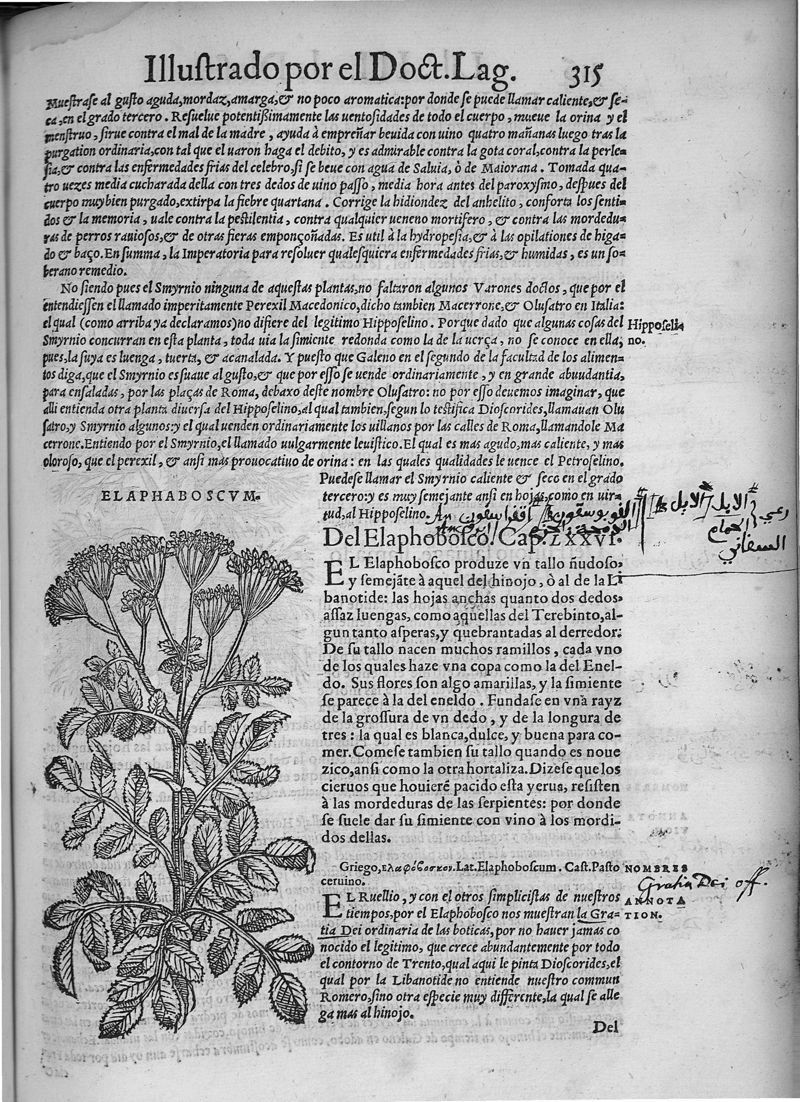 Illuſtrado por el Doct. Lag. 315
Mueſtraſe al guſto aguda, mordaz, amarga, & no poco aromatica: por donde ſe puede llamar caliente, & ſe-
ca, en el grado tercero. Reſuelue potentiſsimamente las uentoſidades de todo el cuerpo, mueue la orina y el
menſtruo, ſirue contra el mal de la madre, ayuda à empreñar beuida con uino quatro mañanas luego tras la
purgation ordinaria, con tal que el uaron haga el debito, y es admirable contra la gota coral, contra la perle-
ſia, & contra las enfermedades frias del celebro, ſi ſe beue con agua de Saluia, ò de Maiorana. Tomada qua-
tro uezes media cucharada della con tres dedos de uino paſſo, media hora antes del paroxyſmo, deſpues del
cuerpo muy bien purgado, extirpa la fiebre quartana. Corrige la hidiondez del anhelito, conforta los ſenti-
dos & la memoria, uale contra la peſtilentia, contra qualquier ueneno mortifero, & contra las mordedu-
ras de perros rauioſos, & de otras fieras emponçoñadas. Es util à la hydropeſia, & à las opilationes de higa-
do & baço. En ſumma, la Imperatoria para reſoluer qualeſquiera enfermedades frias, & humidas, es un ſo-
berano remedio.
No ſiendo pues el Smyrnio ninguna de aqueſtas plantas, no faltaron algunos Varones doctos, que por el
entendieſſen el llamado imperitamente Perexil Macedonico, dicho tambien Macerrone, & Oluſatro en Italia:
el qual (como arriba ya declaramos) no difiere del legitimo Hippoſelino. Porque dado que algunas coſas del
Hippoſeli
Smyrnio concurran en eſta planta, toda uia la ſimiente redonda como la de la uerça, no ſe conoce en ella,
no.
pues, la ſuya es luenga, tuerta, & acanalada. Y pueſto que Galeno en el ſegundo de la facultad de los alimen-
tos diga, que el Smyrnio es ſuaue al guſto, & que por eſſo ſe uende ordinariamente, y en grande abuudantia,
para enſaladas, por las plaças de Roma, debaxo deſte nombre Oluſatro: no por eſſo deuemos imaginar, que
alli entienda otra planta diuerſa del Hippoſelino, al qual tambien, ſegun lo teſtifica Dioſcorides, llamauan Olu
ſatro, y Smyrnio algunos: y el qual uenden ordinariamente los uillanos por las calles de Roma, llamandole Ma
cerrone. Entiendo por el Smyrnio, el llamado uulgarmente leuiſtico. El qual es mas agudo, mas caliente, y mas
oloroſo, que el perexil, & anſi mas prouocatiuo de orina: en las quales qualidades le uence el Petroſelino.
Puedeſe llamar el Smyrnio caliente & ſeco en el grado
tercero: y es muy ſemejante anſi en hojas, como en uir-
tud, al Hippoſelino.
ELAPHABOSCVM.
رعي الابل
الحمام
Del Elaphoboſco. Cap. LXXVI.
EL Elaphoboſco produze vn tallo ñudoſo,
y ſemejãte à aquel del hinojo, ò al de la Li
banotide: las hojas anchas quanto dos dedos,
aſſaz luengas, como aquellas del Terebinto, al-
gun tanto aſperas, y quebrantadas al derredor.
De ſu tallo nacen muchos ramillos, cada vno
de los quales haze vna copa como la del Enel-
do. Sus flores ſon algo amarillas, y la ſimiente
ſe parece à la del eneldo. Fundaſe en vna rayz
de la groſſura de vn dedo, y de la longura de
tres: la qual es blanca, dulce, y buena para co-
mer. Comeſe tambien ſu tallo quando es noue
zico, anſi como la otra hortaliza. Dizeſe que los
cieruos que houierẽ pacido eſta yerua, reſiſten
à las mordeduras de las ſerpientes: por donde
ſe ſuele dar ſu ſimiente con vino à los mordi-
dos dellas.
Griego, ελαφόβοσκον. Lat. Elaphoboſcum. Caſt. Paſto
NOMBRES
ceruino.
Gratia Dei off.
EL Ruellio, y con el otros ſimpliciſtas de nueſtros
ANNOTA
tiempos, por el Elaphoboſco nos mueſtran la Gra-
TION.
tia Dei ordinaria de las boticas, por no hauer jamas co
nocido el legitimo, que crece abundantemente por todo
el contorno de Trento, qual aqui le pinta Dioſcorides, el
qual por la Libanotide no entiende nueſtro commun
Romero, ſino otra eſpecie muy differente, la qual ſe alle
ga mas al hinojo.
Del